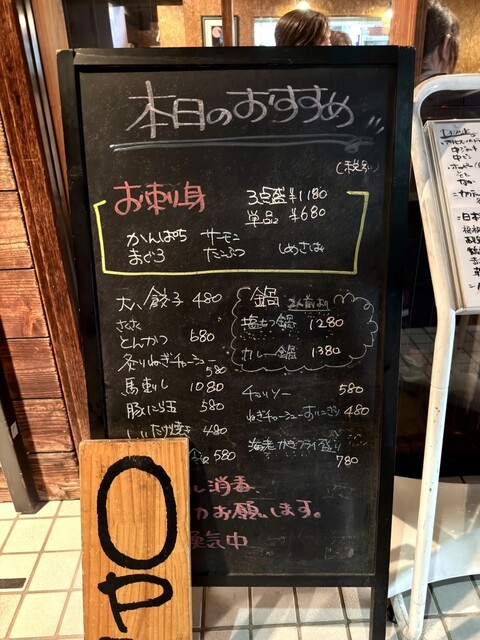 本日のおすすめ
(税別)
お刺し身
3点盛 ¥1180
単品 ¥680
かんぱち サーモン
まぐろ たこぶつ しめさば
大人餃子 480
さくさく
とんかつ 680
炙りねぎチャーシュー
580
馬刺し 1080
豚にら玉 580
しいたけ焼き 480
580
鍋 2人前より
塩もつ鍋 1280
カレー鍋 1380
チョリソー 580
ねぎチャーシューおにぎり 480
海老かきフライ盛り
780
消毒
お願いします。
換気中
OP